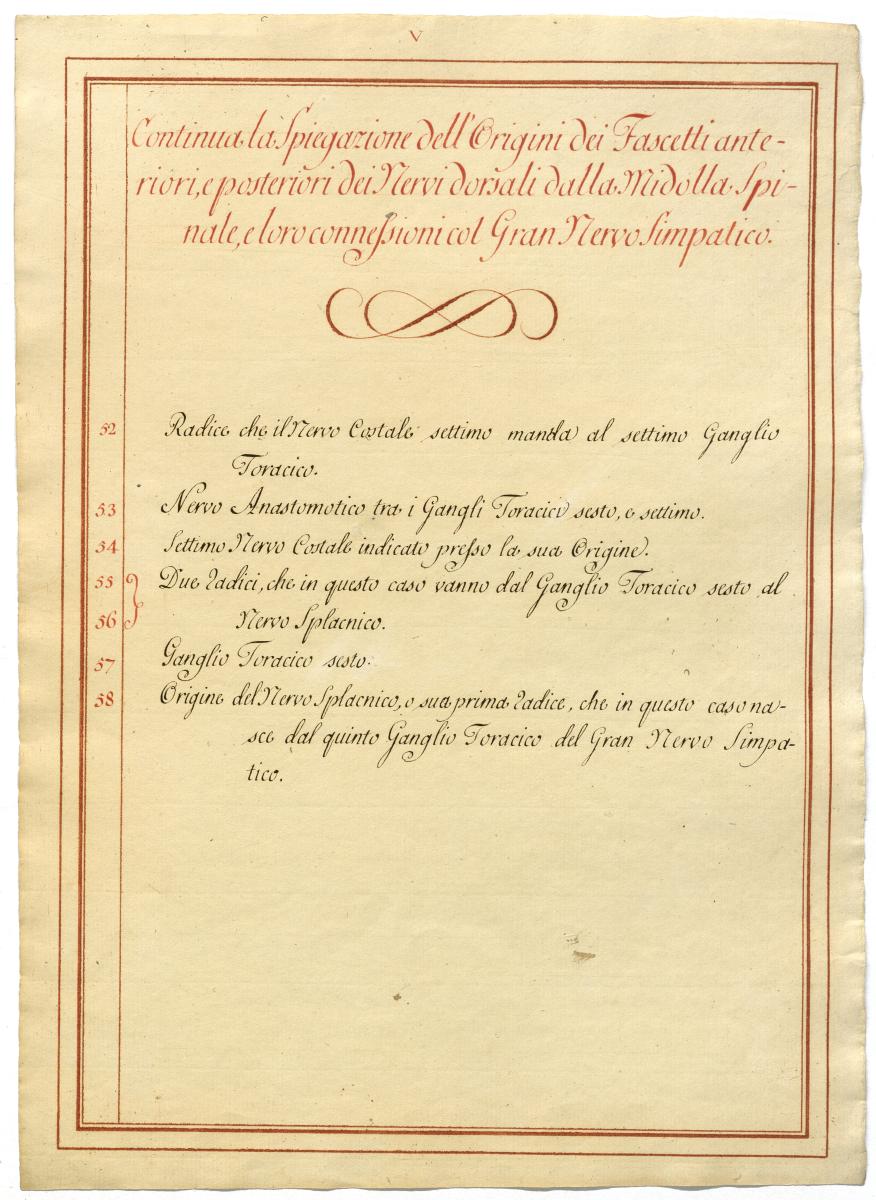 V
Continua la Spiegazione dell'Origini dei Fascetti ante-
riori, e posteriori dei Nervi dorsali dalla Midolla Spi-
nale, e loro connessioni col Gran Nervo Simpatico.
52 Radice che il Nervo Costale settimo manda al settimo Ganglio
Toracico.
53 Nervo Anastomotico tra i Gangli Toracici sesto, e settimo.
54 Settimo Nervo Costale indicato presso la sua Origine.
55 Due radici, che in questo caso vanno dal Ganglio Toracico sesto al
56 Nervo Splacnico.
57 Ganglio Toracico sesto.
58 Origine del Nervo Splacnico, o sua prima radice, che in questo caso na-
sce dal quinto Ganglio Toracico del Gran Nervo Simpa-
tico.